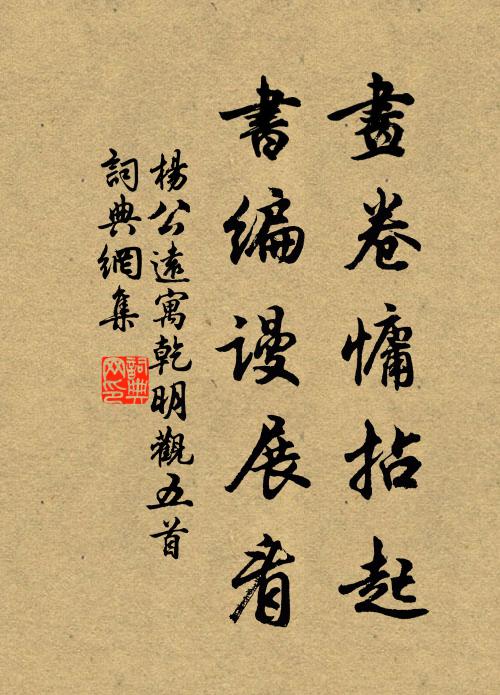 畫卷慵拈起
書編謾展看
楊公遠寓乾明觀五首
詞典網集
詞典網印